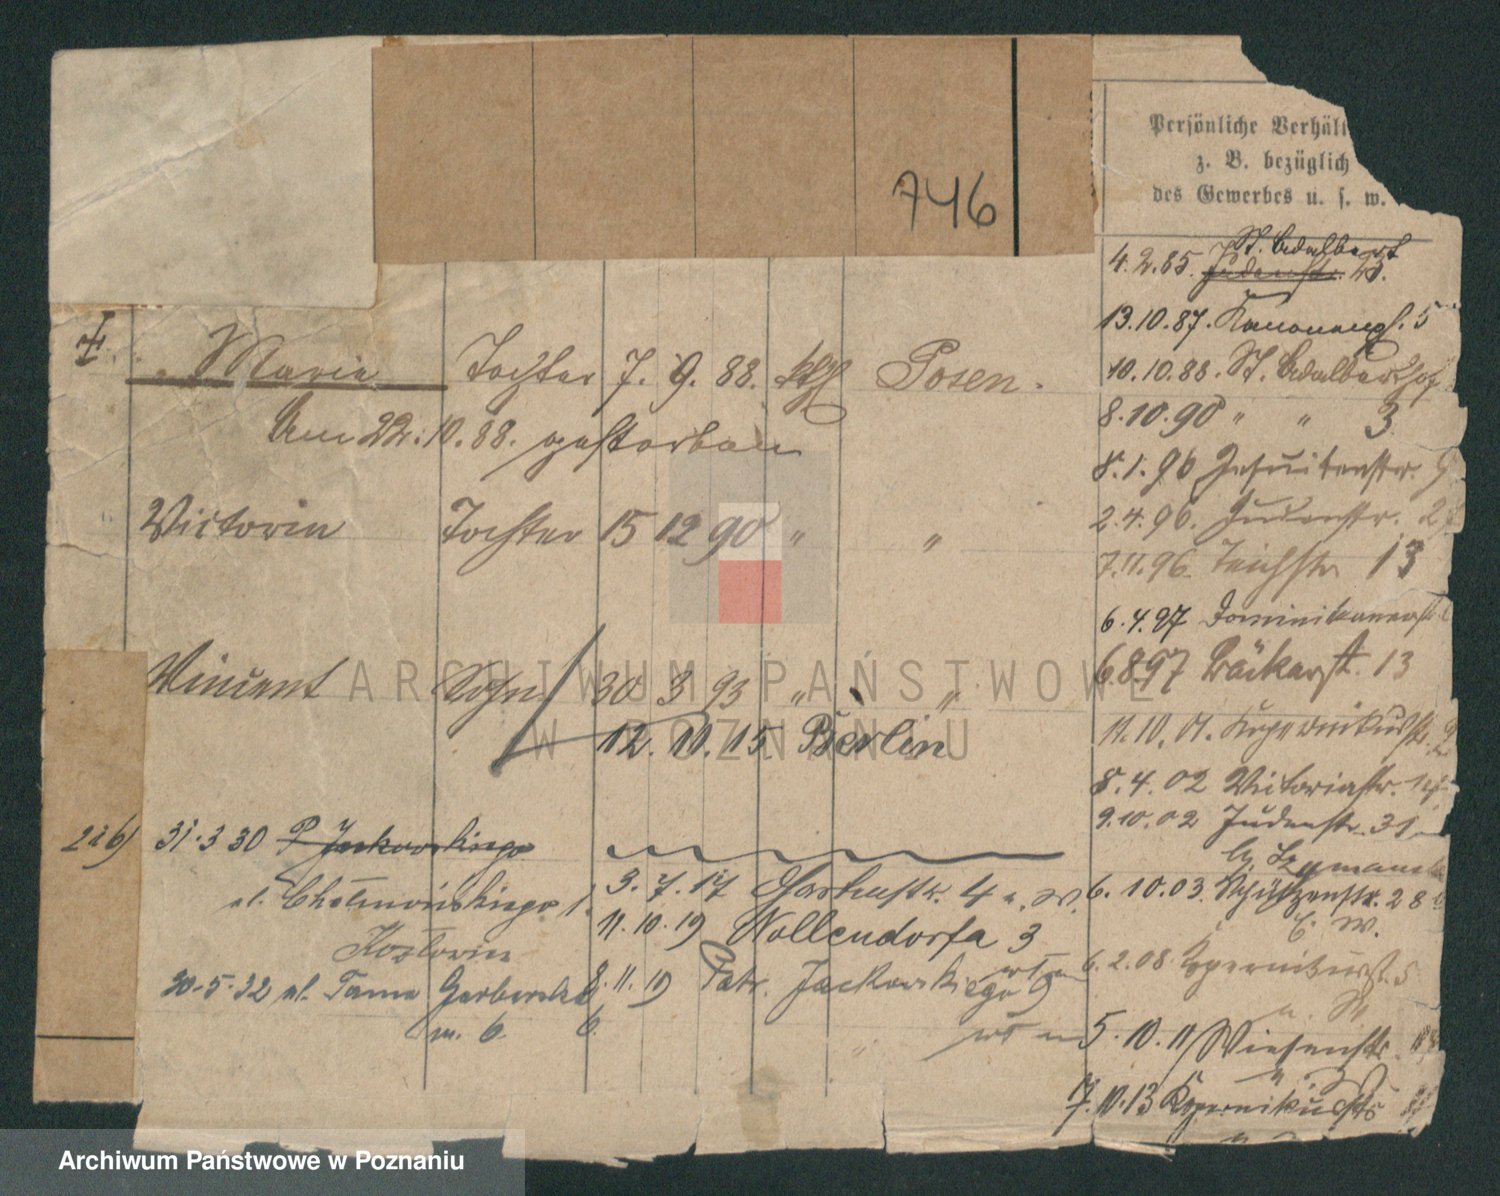 746
Persönliche Verhält
z. B. bezüglich
des Gewerbes u. s. w.
4.2.85. Judenstr. St. Adalbert 23.
13.10.87. Kanonenpl. 5
10.10.88. St. Adalberthof
8.10.90 " " 3
8.1.96 Jesuitenstr. 9
2.4.96. Judenstr. 2
7.11.96. Teichstr 13
6.4.97 Dominikanerstr
6.8.97 Bäckerst. 13
11.10.01. Kopernikusstr. 9
8.4.02 Victoriastr.
9.10.02 Judenstr. 31
6.10.03. Schützenstr. 28
E. W.
6.2.08 Kopernikusst. 5
5.10.11 Wiesenstr.
7.10.13 Kopernikusstr
Maria Tochter 7. 9. 88. kth Posen.
Am 22.10.88. gestorben
Victorin Tochter 15 12 90 " "
Vincent Sohn 30 3 93 " "
12. 10. 15 Berlin
2 i 6) 31.3 30 P. Jackowskiego
ul. Chełmońskiego 1
30-5-32 ul. Tama Garbarska
m. 6 6.
3.7.17 4 a. W.
11.10.19 Nollendorfa 3
8.11.19 Patr. Jackowskiego 9
ARCHIWUM PAŃSTWOWE
W POZNANIU
Archiwum Państwowe w Poznaniu